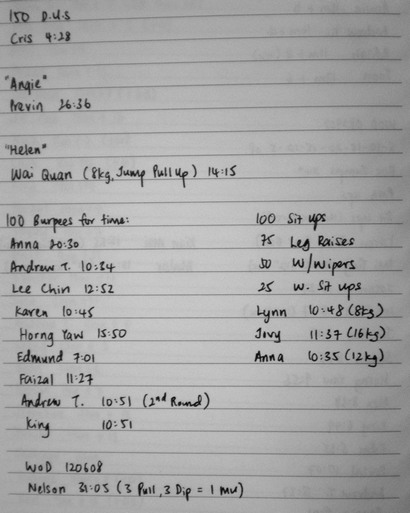 150 D.U.S
Cris 4:28
"Angie"
Previn 26:36
"Helen"
Wai Quan (8kg, Jump Pull Up) 14:15
100 Burpees for time:
Anna 20:30
Andrew T. 10:34
Lee Chin 12:52
Karen 10:45
Horng Yaw 15:50
Edmund 7:01
Faizal 11:27
Andrew T. 10:51 (2nd Round)
King 10:51
100 Sit ups
75 Leg Raises
50 W/Wipers
25 W. Sit ups
Lynn 10:48 (8kg)
Jovy 11:37 (16kg)
Anna 10:35 (12kg)
WoD 120608
Nelson 31:05 (3 Pull, 3 Dip = 1 MU)